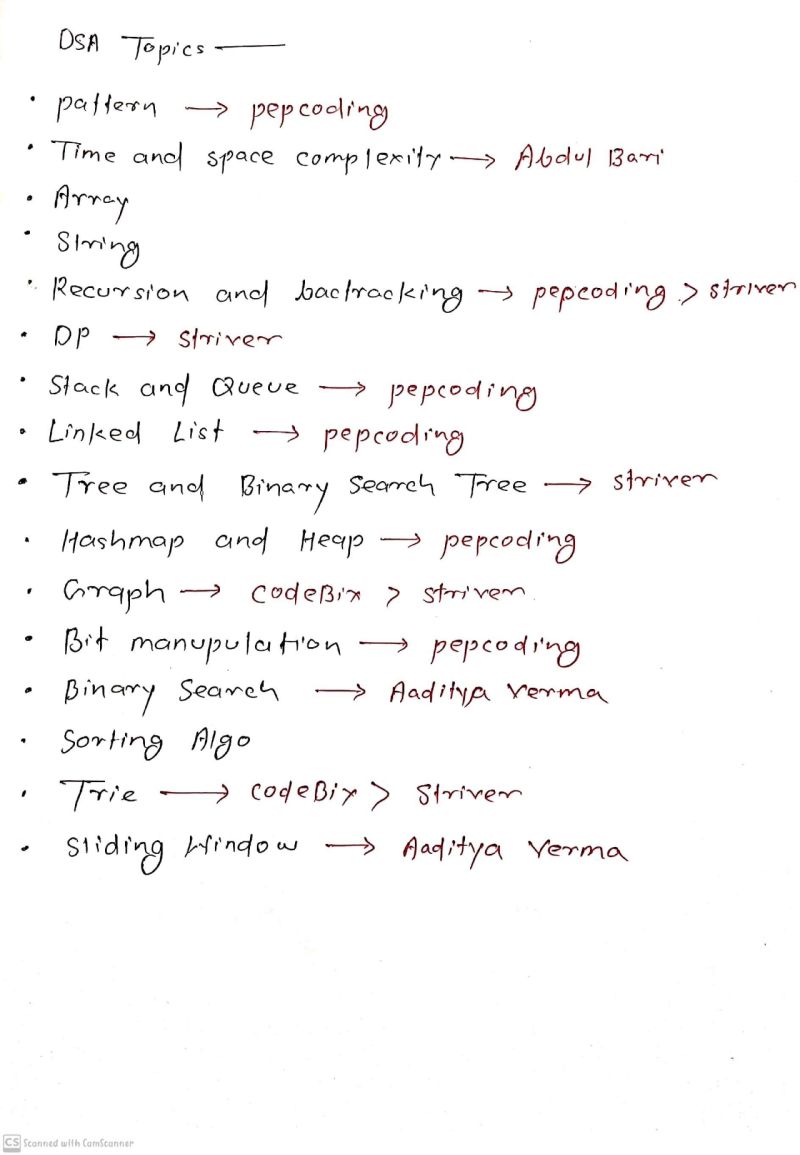 DSA Topics —
• pattern → pepcoding
• Time and space complexity → Abdul Bari
• Array
• String
• Recursion and bactracking → pepcoding > striver
• DP → striver
• Stack and Queue → pepcoding
• Linked List → pepcoding
• Tree and Binary Search Tree → striver
• Hashmap and Heap → pepcoding
• Graph → codeBix > striver
• Bit manupulation → pepcoding
• Binary Search → Aaditya verma
• Sorting Algo
• Trie → codeBix > Striver
• Sliding Window → Aaditya Verma
CS Scanned with CamScanner